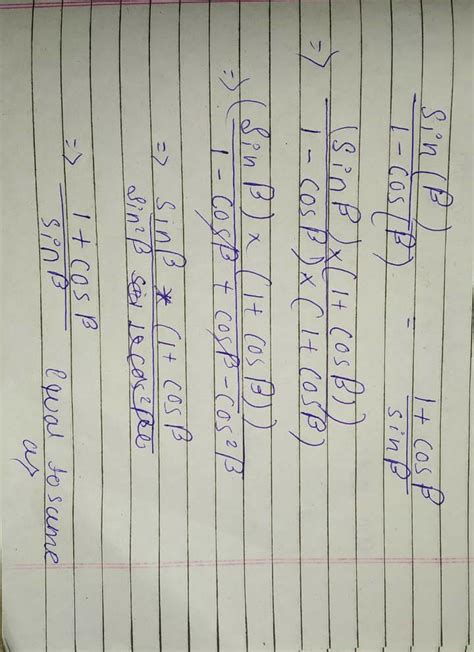 sin(β) / 1 - cos(β) = 1 + cosβ / sinβ
=> (sinβ) × (1 + cosβ) / 1 - cosβ) × (1 + cosβ)
=> (sinβ) × (1 + cosβ)) / 1 - cosβ + cosβ - cos²β
=> sinβ * (1 + cosβ / sin²β
=> 1 + cosβ / sinβ equal to same
as